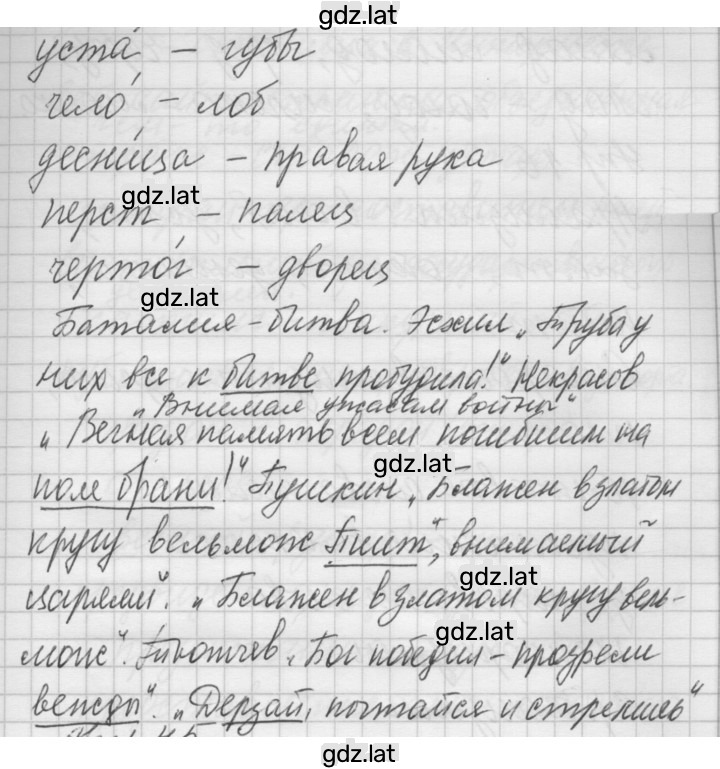 gdz.lat
уста́ – губы
чело́ – лоб
десни́ца – правая рука
gdz.lat
перст – палец
черто́г – дворец
gdz.lat
Баталия – битва. Эсхил „Труба у
них все к битве пробудила!" Некрасов
„Внимая ужасам войны"
„Вечная память всем погибшим на
gdz.lat
поле брани!" Пушкин „Блажен в златом
кругу вельмож Пиит", внимаемый
gdz.lat
царями". „Блажен в златом кругу вель-
gdz.lat
мож". Тютчев „Бог победил – прозрели
вежды". „Дерзай, пытайся и стремись"
gdz.lat